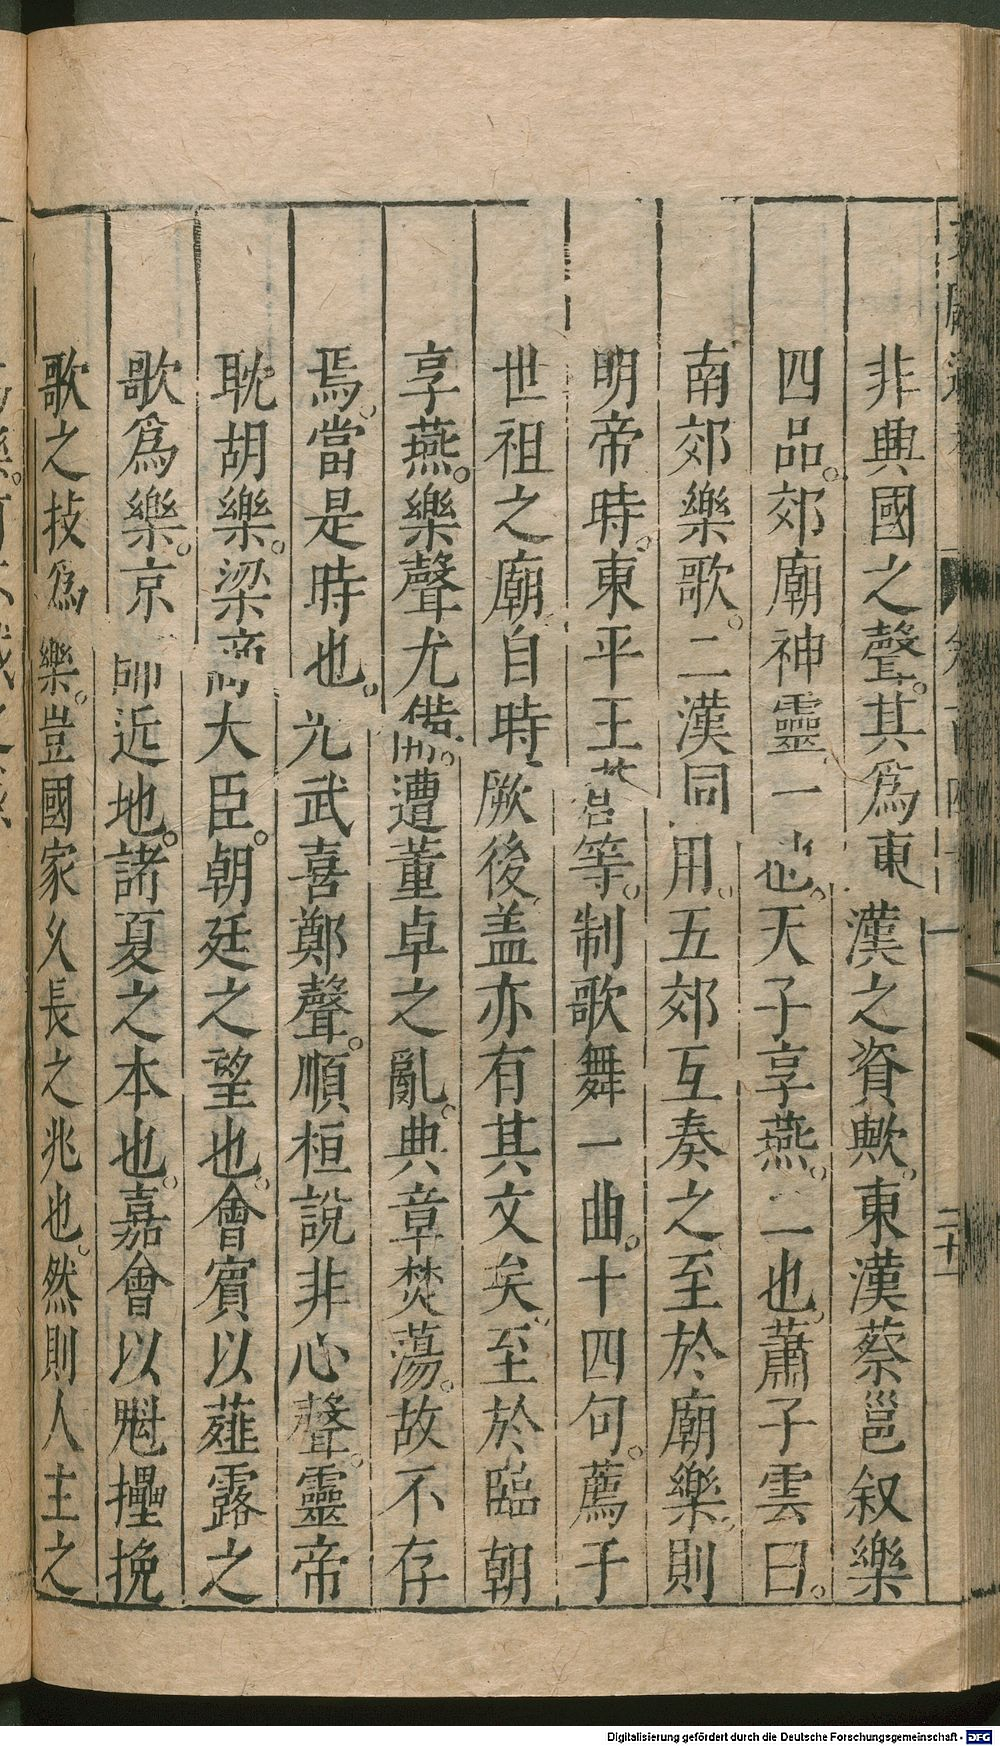 非典國之聲。其為東漢之資歟。東漢蔡邕叙樂
四品。郊廟神靈一也。天子享燕。二也。蕭子雲曰。
南郊樂歌。二漢同用。五郊互奏之至於廟樂則
明帝時。東平王蒼等。制歌舞一曲。十四句。薦于
世祖之廟。自時厥後盖亦有其文矣。至於臨朝
享燕。樂聲尤備。遭董卓之亂。典章焚蕩。故不存
焉。當是時也。光武喜鄭聲。順桓說非心聲。靈帝
耽胡樂。梁商大臣。朝廷之望也。會賓以薤露之
歌爲樂。京師近地。諸夏之本也。嘉會以魁㩙挽
歌之技爲樂。豈國家久長之兆也。然則人主之
二十一
Digitalisierung gefördert durch die Deutsche Forschungsgemeinschaft - DFG